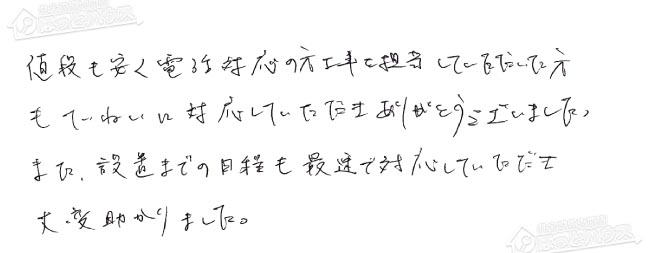 値段も安く電話対応の方工事を担当していただいた方
もていねいに対応していただきありがとうございました。
また、設置までの日程も最速で対応していただき
大変助かりました。